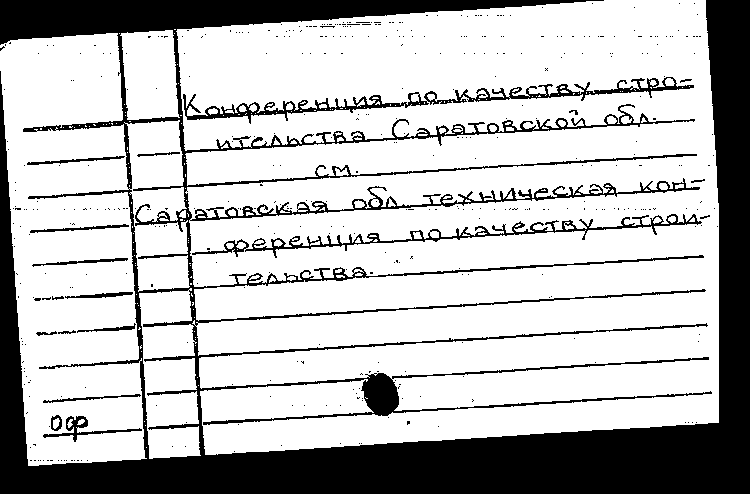 Конференция по качеству стро=
ительства Саратовской обл.
см.
Саратовская обл. техническая кон=
ференция по качеству строи-
тельства.
оф